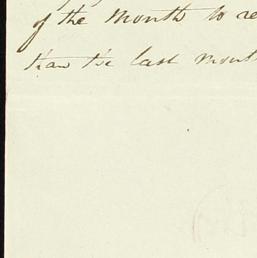 of the Month to re
than the last mont